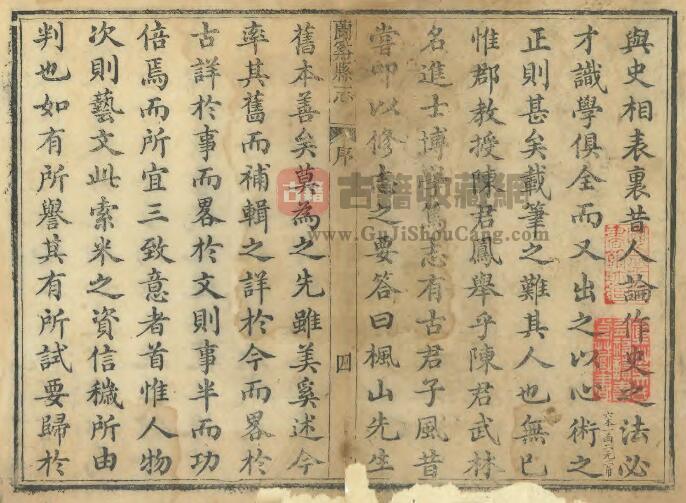 與史相表裏昔人論作史之法必
才識學俱全而又出之以心術之
正則甚矣載筆之難其人也無已
惟郡教授陳君鳳舉乎陳君武林
名進士博志有古君子風昔
嘗叩以修志之要答曰楓山先生
蘭谿縣志 序 四
舊本善矣莫為之先雖美奚述今
率其舊而補輯之詳於今而畧於
古詳於事而畧於文則事半而功
倍焉而所宜三致意者首惟人物
次則藝文此索米之資信穢所由
判也如有所譽其有所試要歸於
古籍
古籍收藏網
www.GuJiShouCang.com